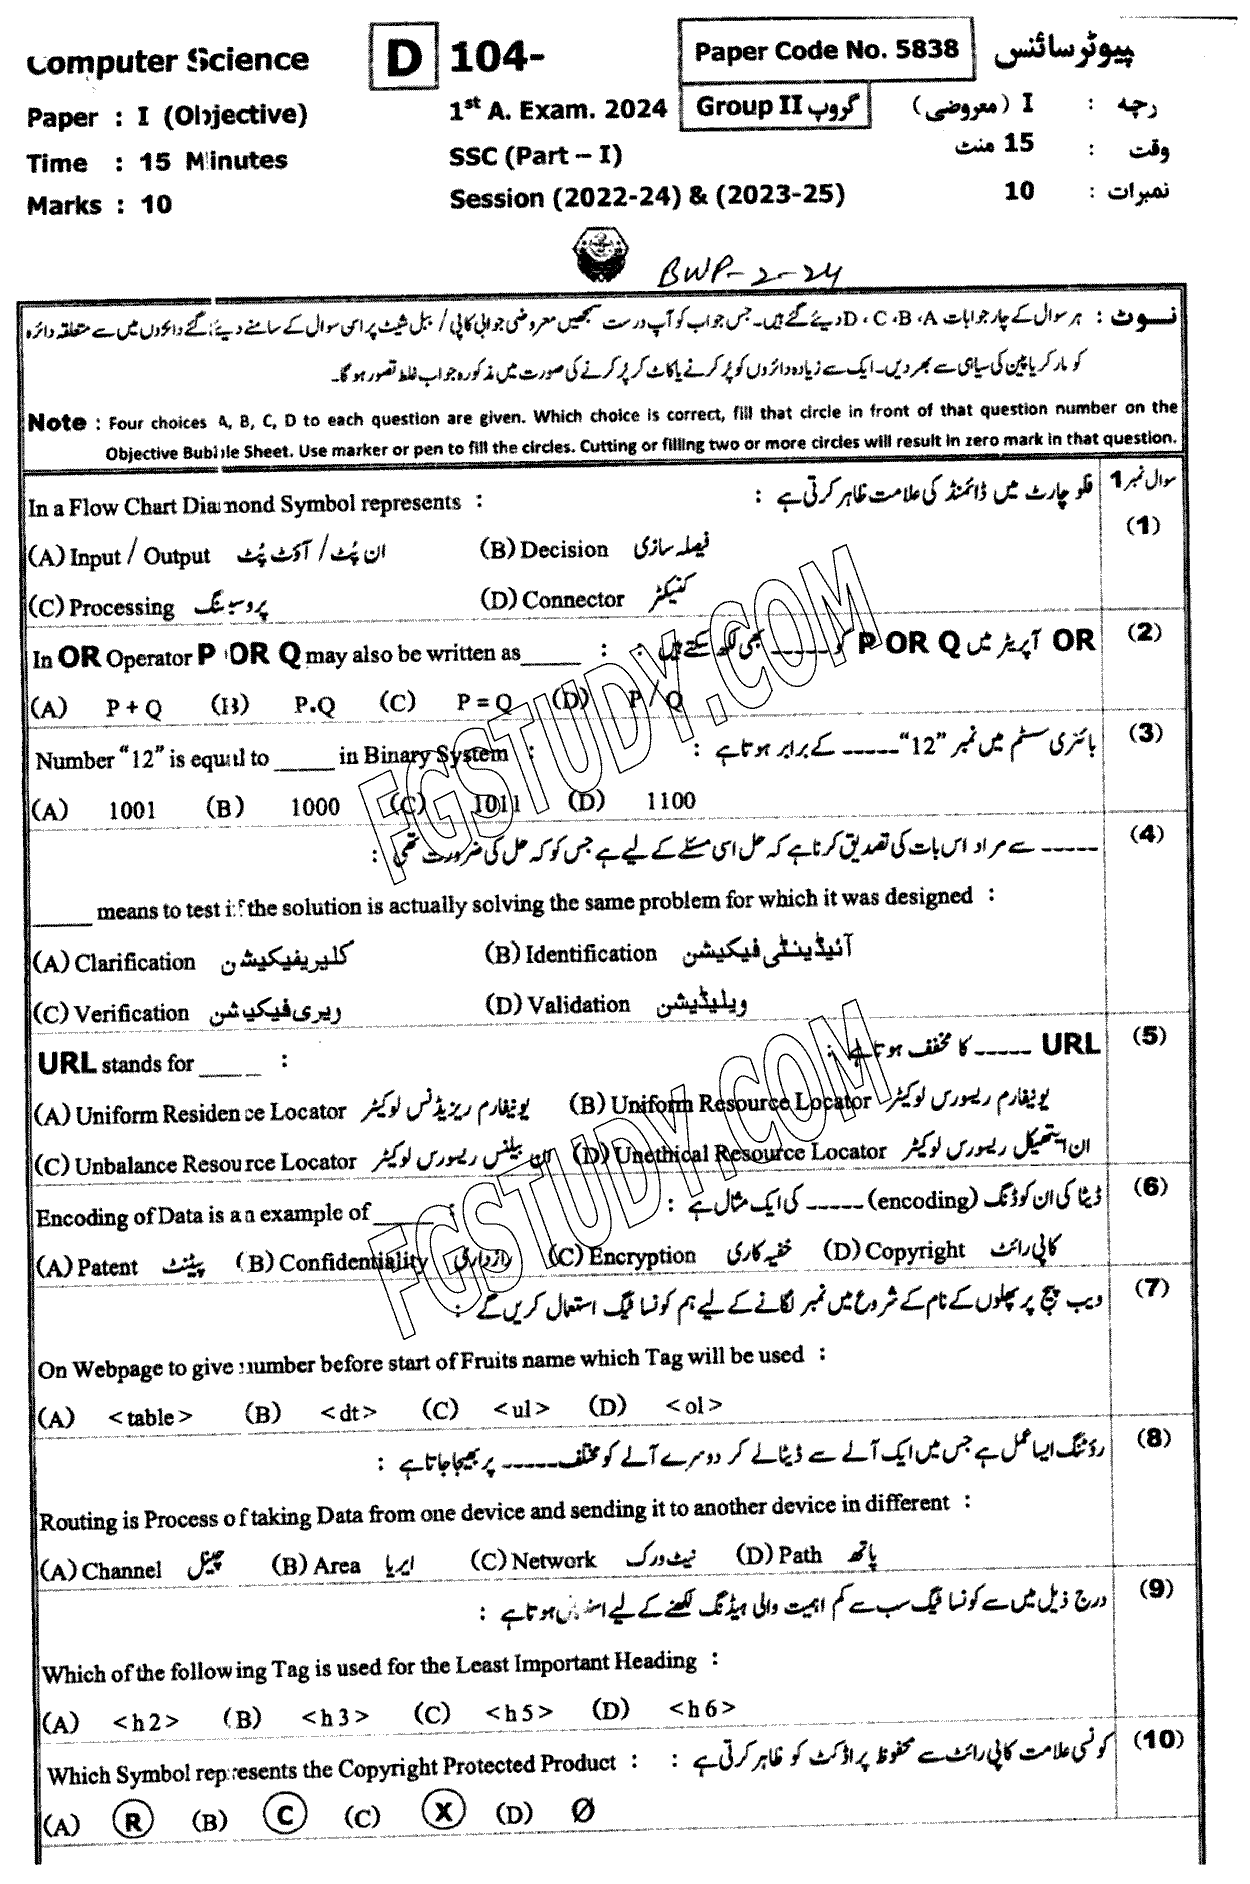 Computer Science D 104- Paper Code No. 5838 کمپیوٹر سائنس
Paper : I (Objective) 1st A. Exam. 2024 Group II گروپ I (معروضی) : پرچہ
Time : 15 Minutes SSC (Part – I) 15 منٹ : وقت
Marks : 10 Session (2022-24) & (2023-25) 10 : نمبرات
BWP-2-24
نوٹ : ہر سوال کے چار جوابات D ، C ، B ، A دیئے گئے ہیں۔ جس جواب کو آپ درست سمجھیں معروضی جوابی کاپی / ببل شیٹ پر اسی سوال کے سامنے دیئے گئے دائروں میں سے متعلقہ دائرہ
کو مارکر یا پین کی سیاہی سے بھر دیں۔ ایک سے زیادہ دائروں کو پُر کرنے یا کاٹ کر پُر کرنے کی صورت میں مذکورہ جواب غلط تصور ہو گا۔
Note : Four choices A, B, C, D to each question are given. Which choice is correct, fill that circle in front of that question number on the
Objective Bubble Sheet. Use marker or pen to fill the circles. Cutting or filling two or more circles will result in zero mark in that question.
سوال نمبر 1
In a Flow Chart Diamond Symbol represents : فلو چارٹ میں ڈائمنڈ کی علامت ظاہر کرتی ہے : (1)
(A) Input / Output ان پُٹ / آؤٹ پُٹ (B) Decision فیصلہ سازی
(C) Processing پروسیسنگ (D) Connector کنیکٹر
In OR Operator P OR Q may also be written as_____ : OR آپریٹر میں P OR Q کو ----- بھی لکھ سکتے ہیں : (2)
(A) P + Q (B) P.Q (C) P = Q (D) P / Q
Number "12" is equal to _____ in Binary System : بائنری سسٹم میں نمبر "12" ----- کے برابر ہوتا ہے : (3)
(A) 1001 (B) 1000 (C) 1011 (D) 1100
----- سے مراد اس بات کی تصدیق کرنا ہے کہ حل اسی مسئلے کے لیے ہے جس کو کہ حل کی ضرورت تھی : (4)
_____ means to test if the solution is actually solving the same problem for which it was designed :
(A) Clarification کلیریفیکیشن (B) Identification آئیڈینٹی فیکیشن
(C) Verification ویری فیکیشن (D) Validation ویلیڈیشن
URL stands for _____ : URL ----- کا مخفف ہوتا ہے : (5)
(A) Uniform Residence Locator یونیفارم ریزیڈنس لوکیٹر (B) Uniform Resource Locator یونیفارم ریسورس لوکیٹر
(C) Unbalance Resource Locator ان بیلنس ریسورس لوکیٹر (D) Unethical Resource Locator ان ایتھیکل ریسورس لوکیٹر
Encoding of Data is an example of_____ : ڈیٹا کی ان کوڈنگ (encoding) ----- کی ایک مثال ہے : (6)
(A) Patent پیٹنٹ (B) Confidentiality رازداری (C) Encryption خفیہ کاری (D) Copyright کاپی رائٹ
ویب پیج پر پھلوں کے نام کے شروع میں نمبر لگانے کے لیے ہم کونسا ٹیگ استعمال کریں گے : (7)
On Webpage to give number before start of Fruits name which Tag will be used :
(A) <table> (B) <dt> (C) <ul> (D) <ol>
روٹنگ ایسا عمل ہے جس میں ایک آلے سے ڈیٹا لے کر دوسرے آلے کو مختلف ----- پر بھیجا جاتا ہے : (8)
Routing is Process of taking Data from one device and sending it to another device in different :
(A) Channel چینل (B) Area ایریا (C) Network نیٹ ورک (D) Path پاتھ
درج ذیل میں سے کونسا ٹیگ سب سے کم اہمیت والی ہیڈنگ لکھنے کے لیے استعمال ہوتا ہے : (9)
Which of the following Tag is used for the Least Important Heading :
(A) <h2> (B) <h3> (C) <h5> (D) <h6>
Which Symbol represents the Copyright Protected Product : کونسی علامت کاپی رائٹ سے محفوظ پراڈکٹ کو ظاہر کرتی ہے : (10)
(A) Ⓡ (B) Ⓒ (C) Ⓧ (D) Ø
FGSTUDY.COM
FGSTUDY.COM